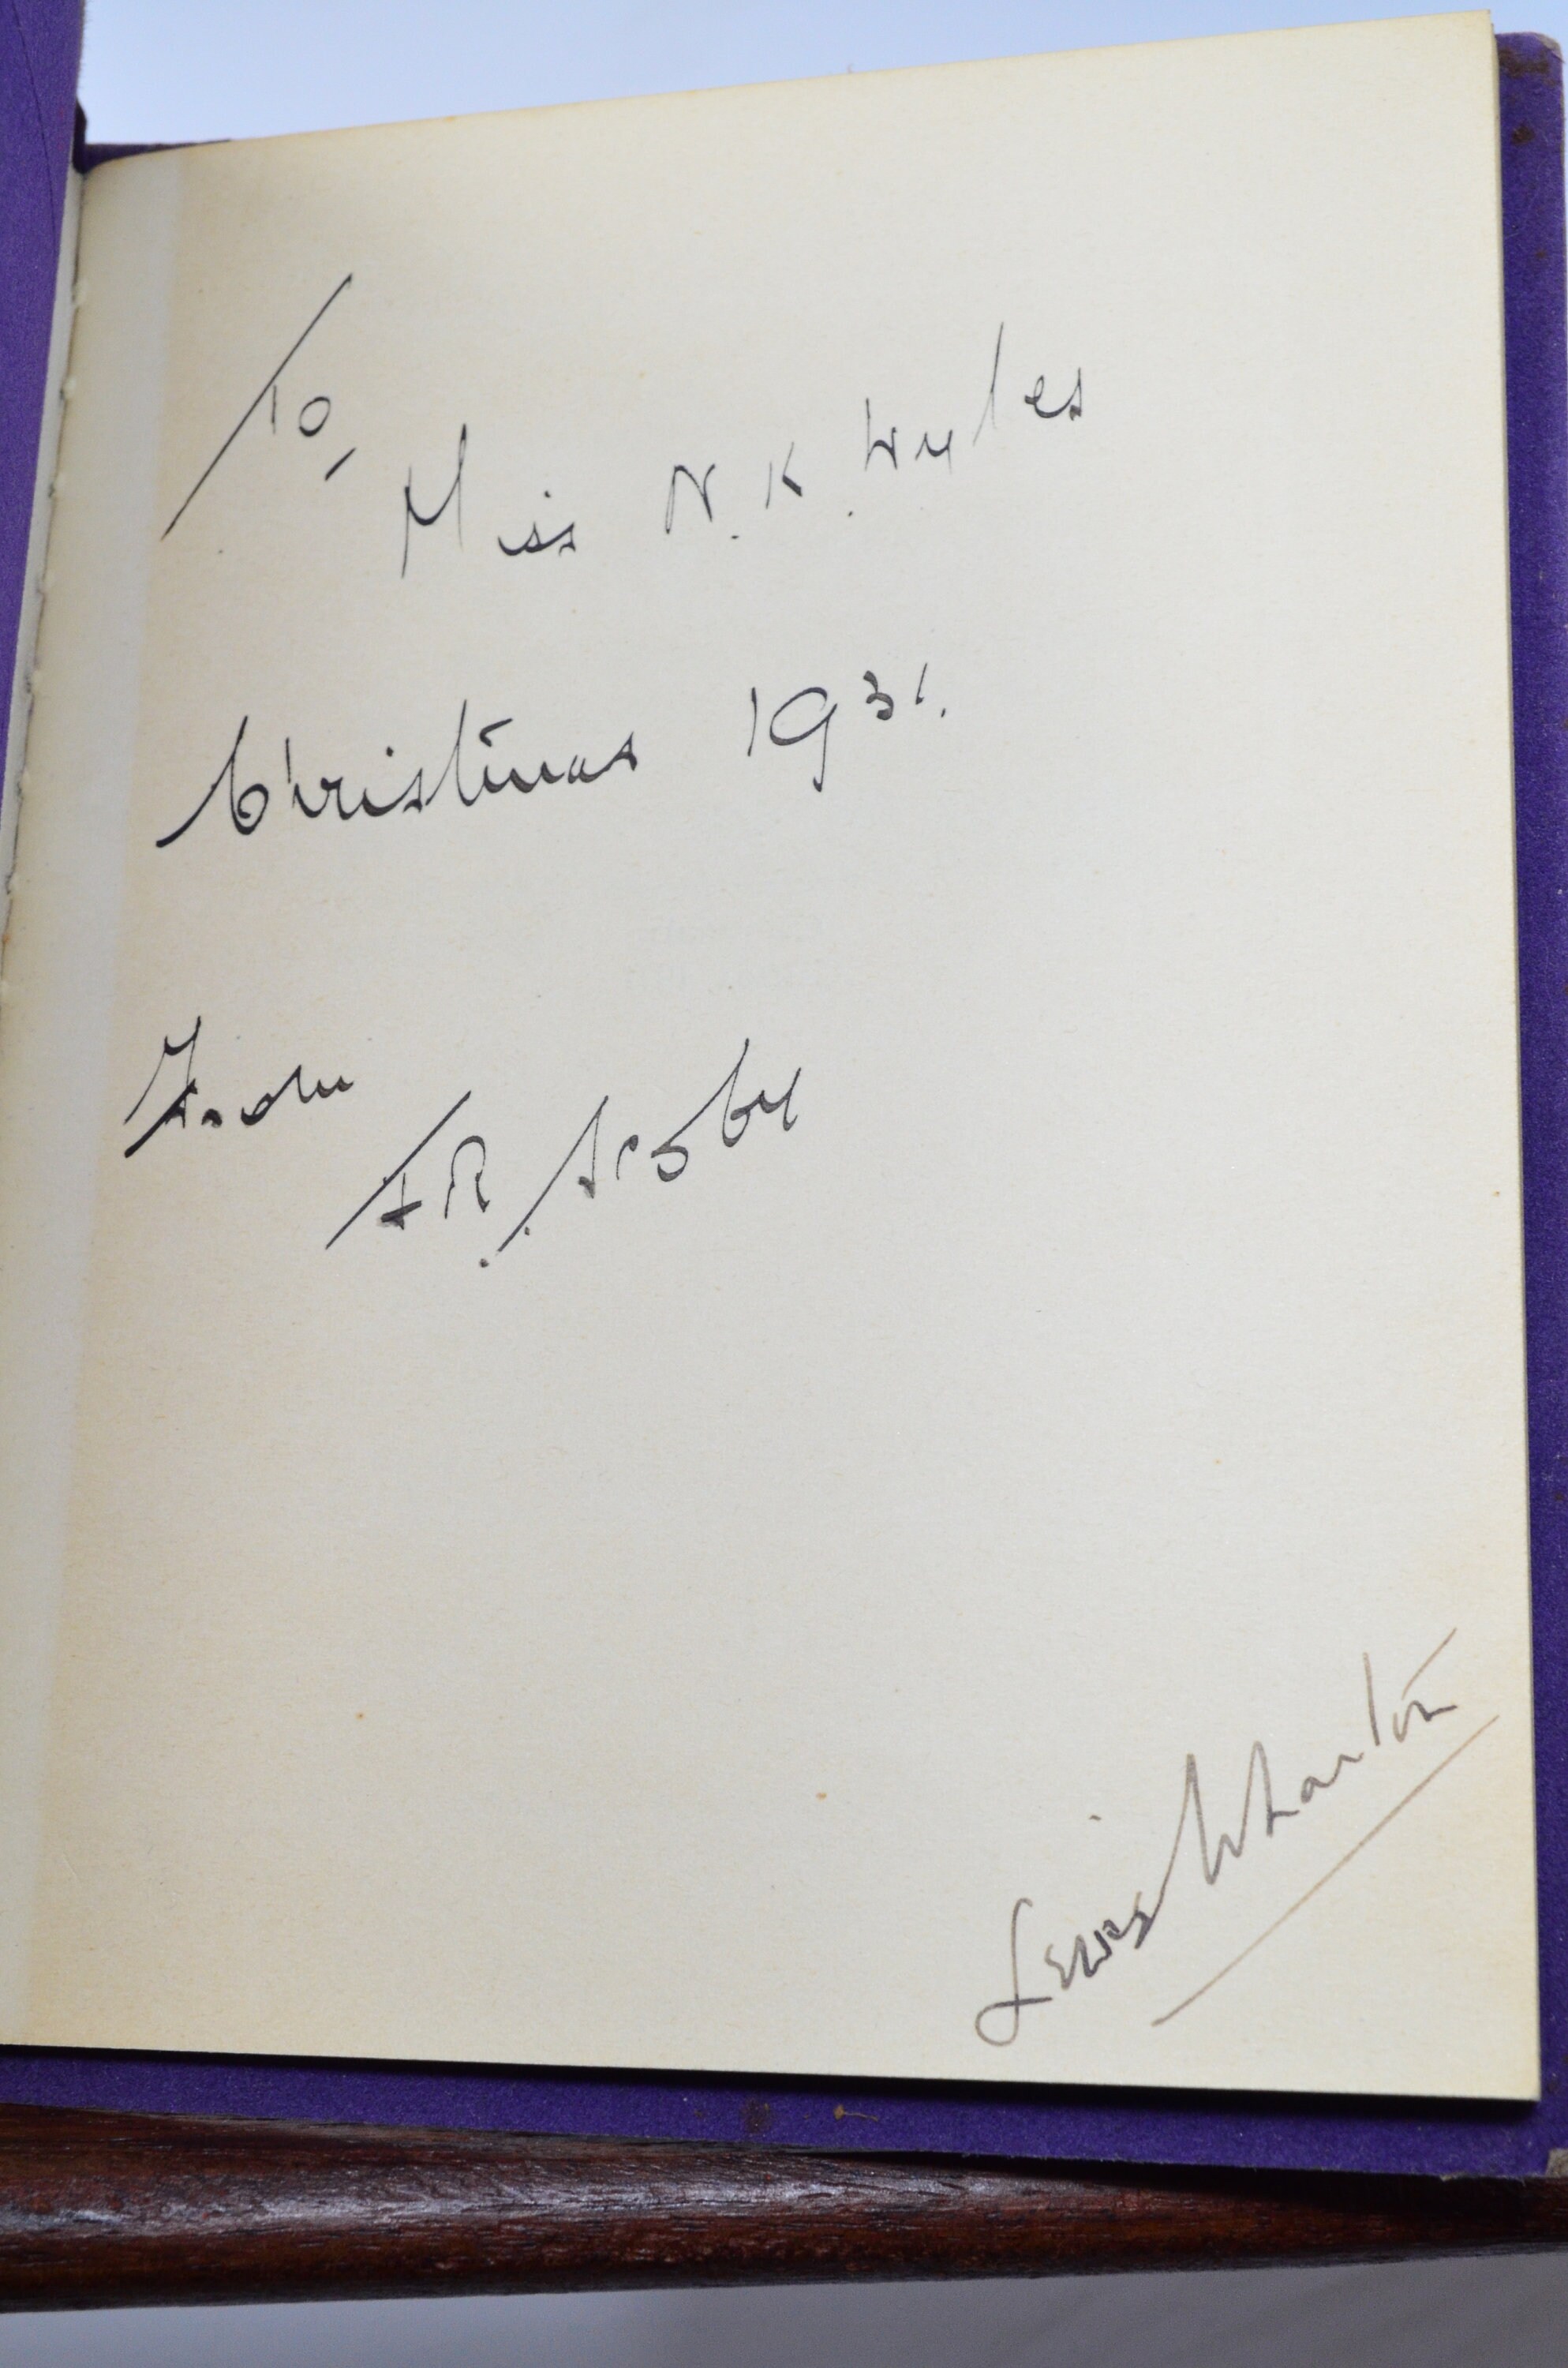 To,
Miss N. K. Wyles
Christmas 1931.
From
F R. Scoby
Lewis Wharton